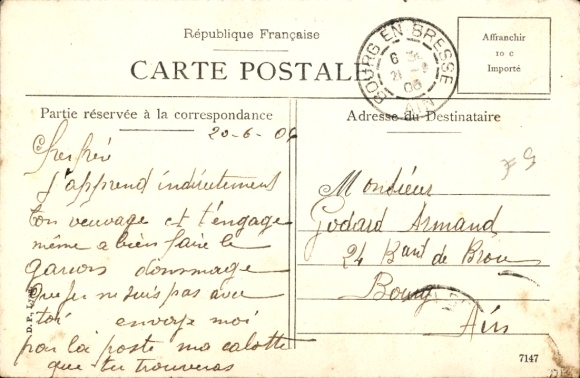 République Française
CARTE POSTALE
Affranchir
10 c
Importé
BOURG EN BRESSE
6
21 -6
06
AIN
Partie réservée à la correspondance
Adresse du Destinataire
20-6-06
Cher frère
J'apprend indirectement
ton veuvage et t'engage
même a bien faire le
garçon dommage
que je ne suis pas avec
toi envoye moi
par la poste ma calotte
que tu trouveras
Monsieur
Godard Armand
24 Bard de Brou
Bourg
Ain
D. F.,
7147